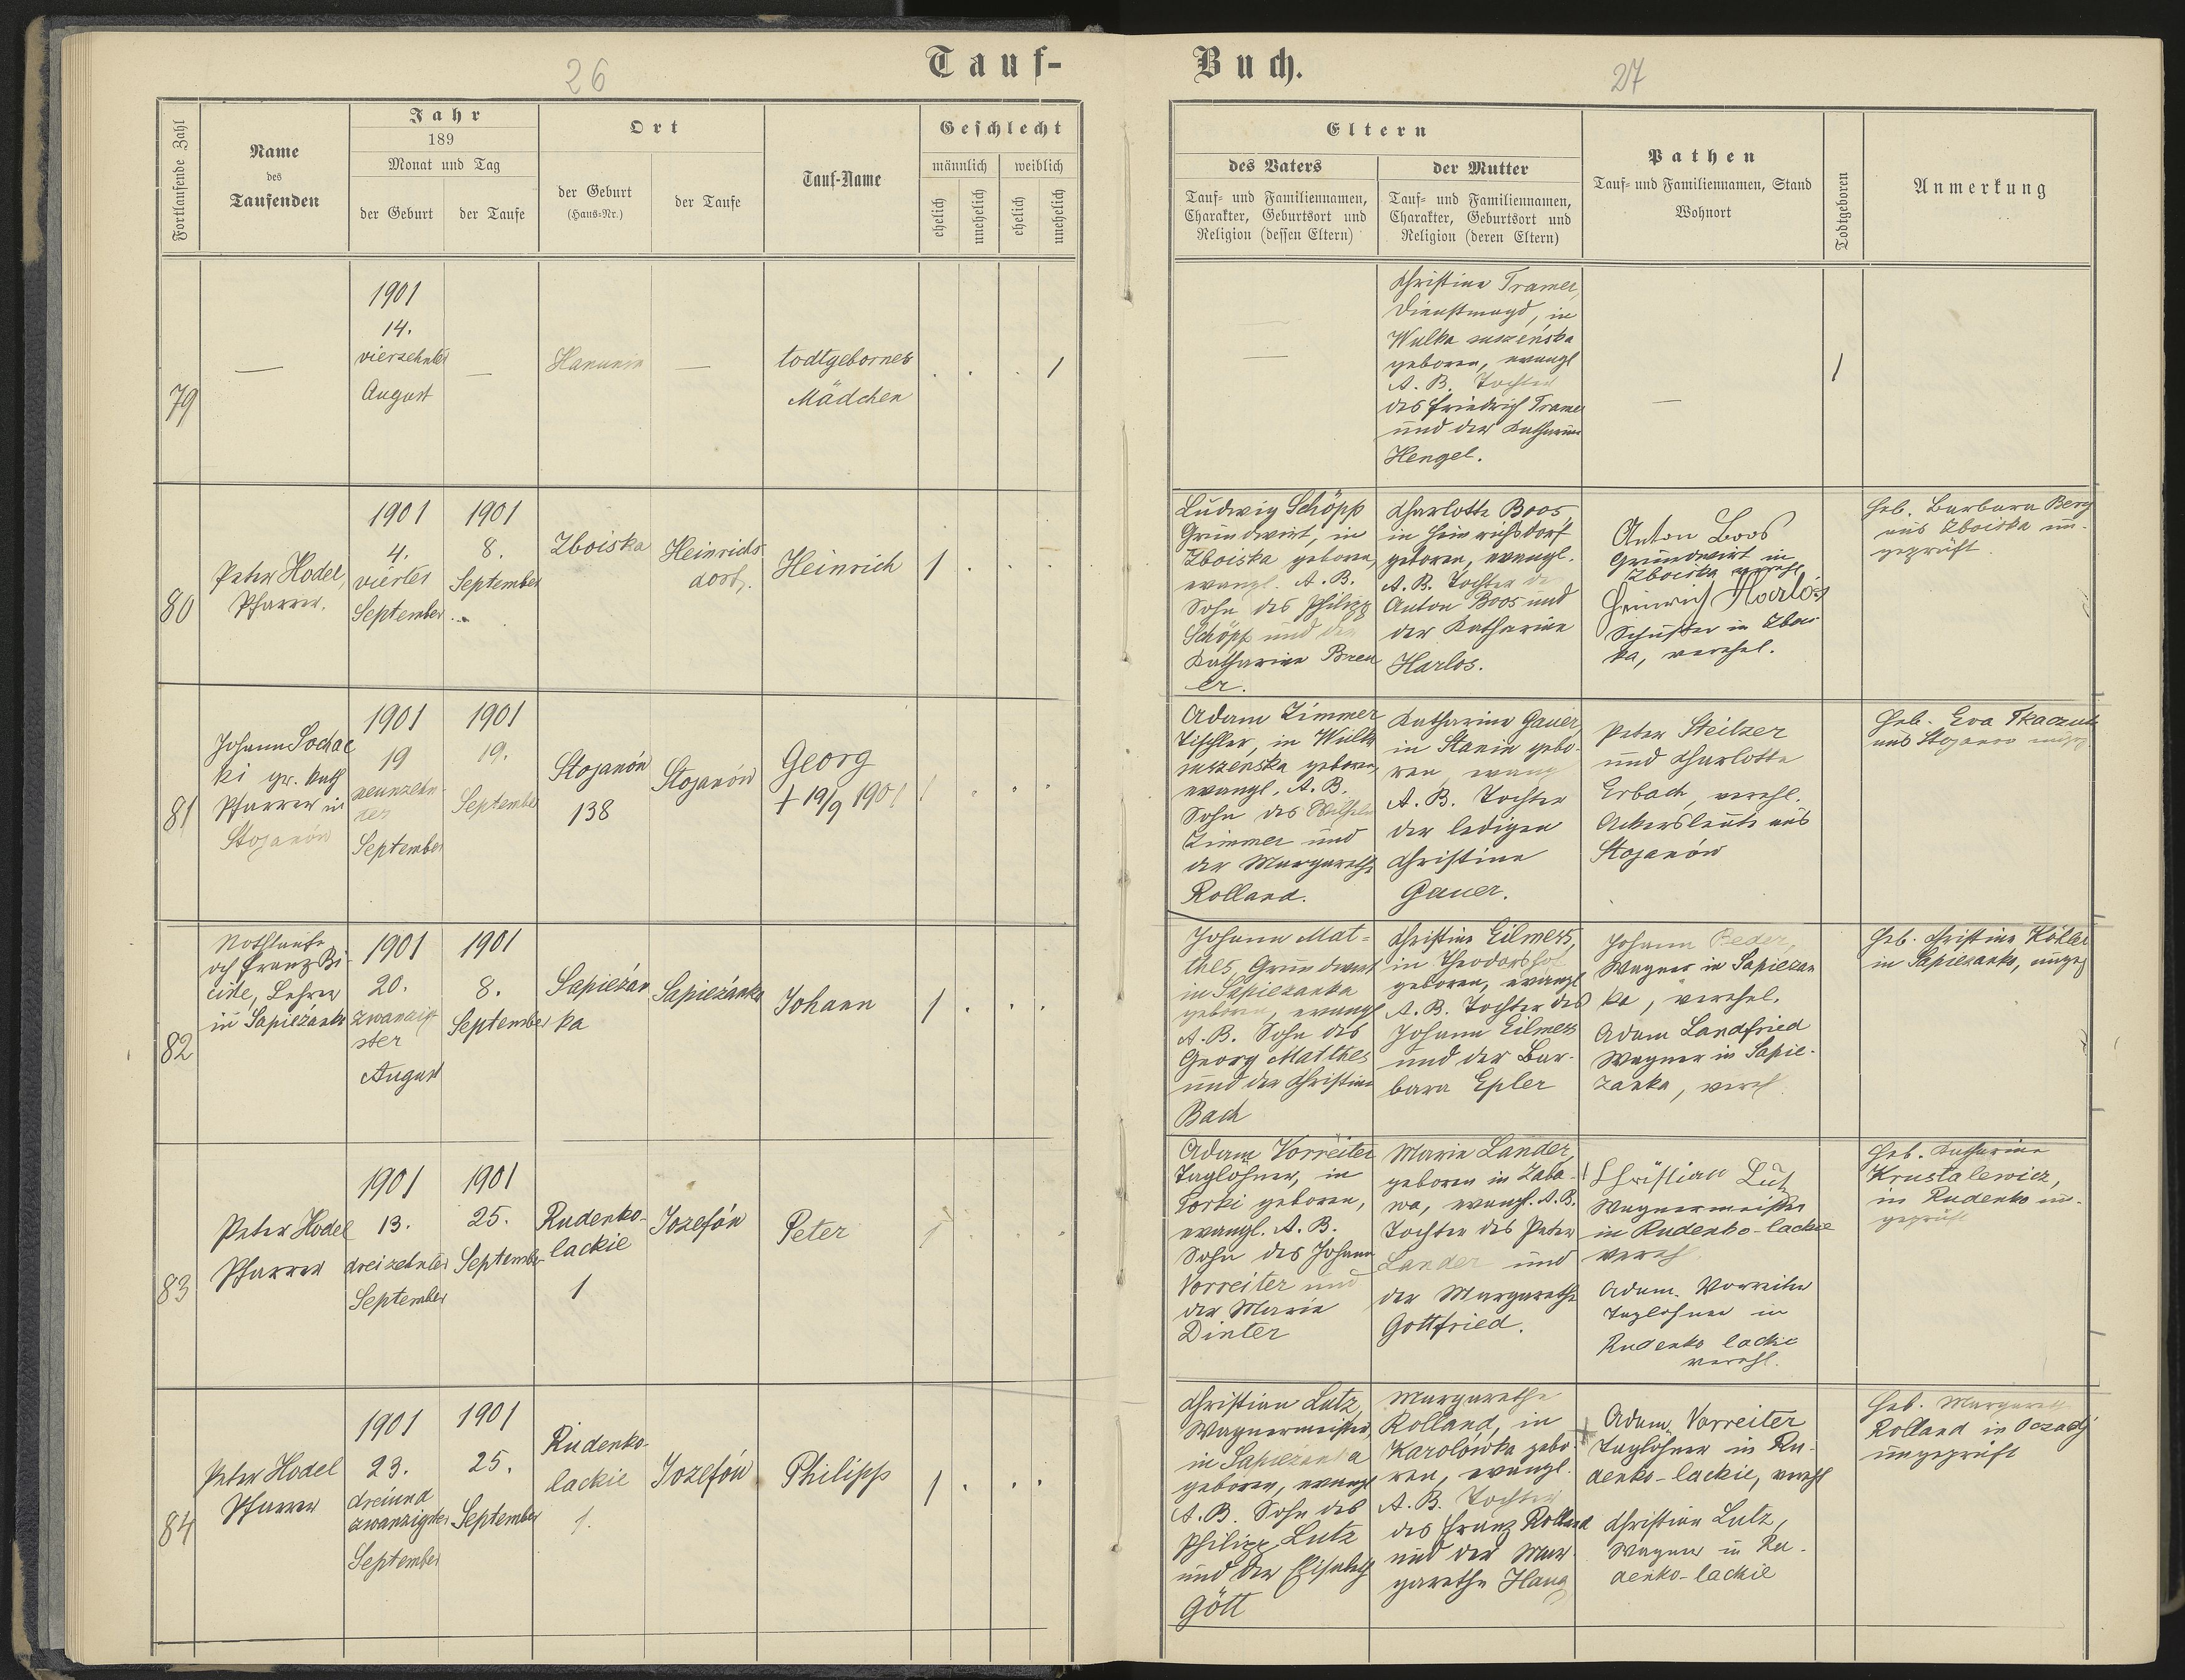 26
Tauf-
Buch.
27
Fortlaufende Zahl
Name
des
Taufenden
Jahr
189
Monat und Tag
der Geburt
der Taufe
Ort
der Geburt
(Haus-Nr.)
der Taufe
Tauf-Name
Geschlecht
männlich
weiblich
ehelich
unehelich
ehelich
unehelich
Eltern
des Vaters
Tauf- und Familiennamen,
Charakter, Geburtsort und
Religion (dessen Eltern)
der Mutter
Tauf- und Familiennamen,
Charakter, Geburtsort und
Religion (deren Eltern)
Pathen
Tauf- und Familiennamen, Stand
Wohnort
Todtgeboren
Anmerkung
79
—
1901
14.
vierzehnter
August
—
Hanunin
—
todtgebornes
Mädchen
1
—
Christine Tramer,
Dienstmagd, in
Wulka suszeńska
geboren, evangl
A. B. Tochter
des Friedrich Tramer
und der Katharina
Hengel.
—
1
80
Peter Hodel,
Pfarrer.
1901
4.
vierter
September
1901
8.
September
Zboiska
Heinrichs
dorf.
Heinrich
1
Ludwig Schöpp
Grundwirt, in
Zboiska geboren,
evangl. A. B.
Sohn des Philipp
Schöpp und der
Katharina Bren
er.
Charlotte Boos,
in Heinrichsdorf
geboren, evangl.
A. B. Tochter des
Anton Boos und
der Katharina
Harlos.
Anton Boos
Grundwirt in
Zboiska verehl
Heinrich Harlos
Schuster in Zbois
ka, verehel.
Heb. Barbara Berg
aus Zboiska un-
geprüft.
81
Johann Sochac
ki gr. kath
Pfarrer in
Stojanów
1901
19
neunzehn-
ter
September
1901
19.
September
Stojanów
138
Stojanów
Georg
+ 19/9 1901
1
Adam Zimmer
Tischler, in Wulka
suszenska geboren,
evangl. A. B.
Sohn des Wilhelm
Zimmer und
der Margarethe
Rolland.
Katharina Gauer,
in Stanin gebo-
ren, evang
A. B. Tochter
der ledigen
Christine
Gauer.
Peter Steilzer
und Charlotte
Erbach, verehl.
Ackersleute aus
Stojanów
Heb. Eva Tkaczuk
aus Stojanow
82
Nothtaufe
dch Franz Bi-
cike, Lehrer
in Sapieżanka
1901
20.
zwanzig
ster
August
1901
8.
September
Sapieżan
ka
Sapieżanka
Johann
1
Johann Mat-
thes, Grundwirt
in Sapiezanka
geboren, evangl
A. B. Sohn des
Georg Matthes
und der Christine
Bach
Christine Eilmess,
in Theodorshof
geboren, evangl
A. B. Tochter des
Johann Eilmess
und der Bar-
bara Epler
Johann Reder,
Wagner in Sapiezan
ka, verehel.
Adam Landfried
Wagner in Sapie-
zanka, vereh
Heb. Christine Köhler
in Sapiezanka, ungep
83
Peter Hodel
Pfarrer
1901
13.
dreizehnter
September
1901
25.
September
Rudenko-
lackie
1
Jozefów
Peter
1
Adam Vorreiter
Taglöhner, in
Torki geboren,
evangl. A. B.
Sohn des Johann
Vorreiter und
der Marie
Dinter
Marie Lander,
geboren in Zaba-
wa, evangl. A. B.
Tochter des Peter
Lander und
der Margarethe
Gottfried.
Christian Lutz
Wagnermeister
in Rudenko-lackie
vereh
Adam Vorreiter
Taglöhner in
Rudenko lackie
verehl.
Heb. Katharina
Krustalewicz,
in Rudenko un-
geprüft
84
Peter Hodel
Pfarrer
1901
23.
dreiund
zwanzigster
September
1901
25.
September
Rudenko-
lackie
1.
Jozefów
Philipp
1
Christian Lutz,
Wagnermeister,
in Sapiezanka
geboren, evangl
A. B. Sohn des
Philipp Lutz
und der Elisabeth
Gött
Margarethe
Rolland, in
Karolówka gebo-
ren, evangl.
A. B. Tochter
des Franz Rolland
und der Mar-
garethe Haug
Adam Vorreiter
Taglöhner in Ru-
denko-lackie, verehl
Christian Lutz,
Wagner in Ru-
denko-lackie
Heb. Margareth
Rolland in
ungeprüft